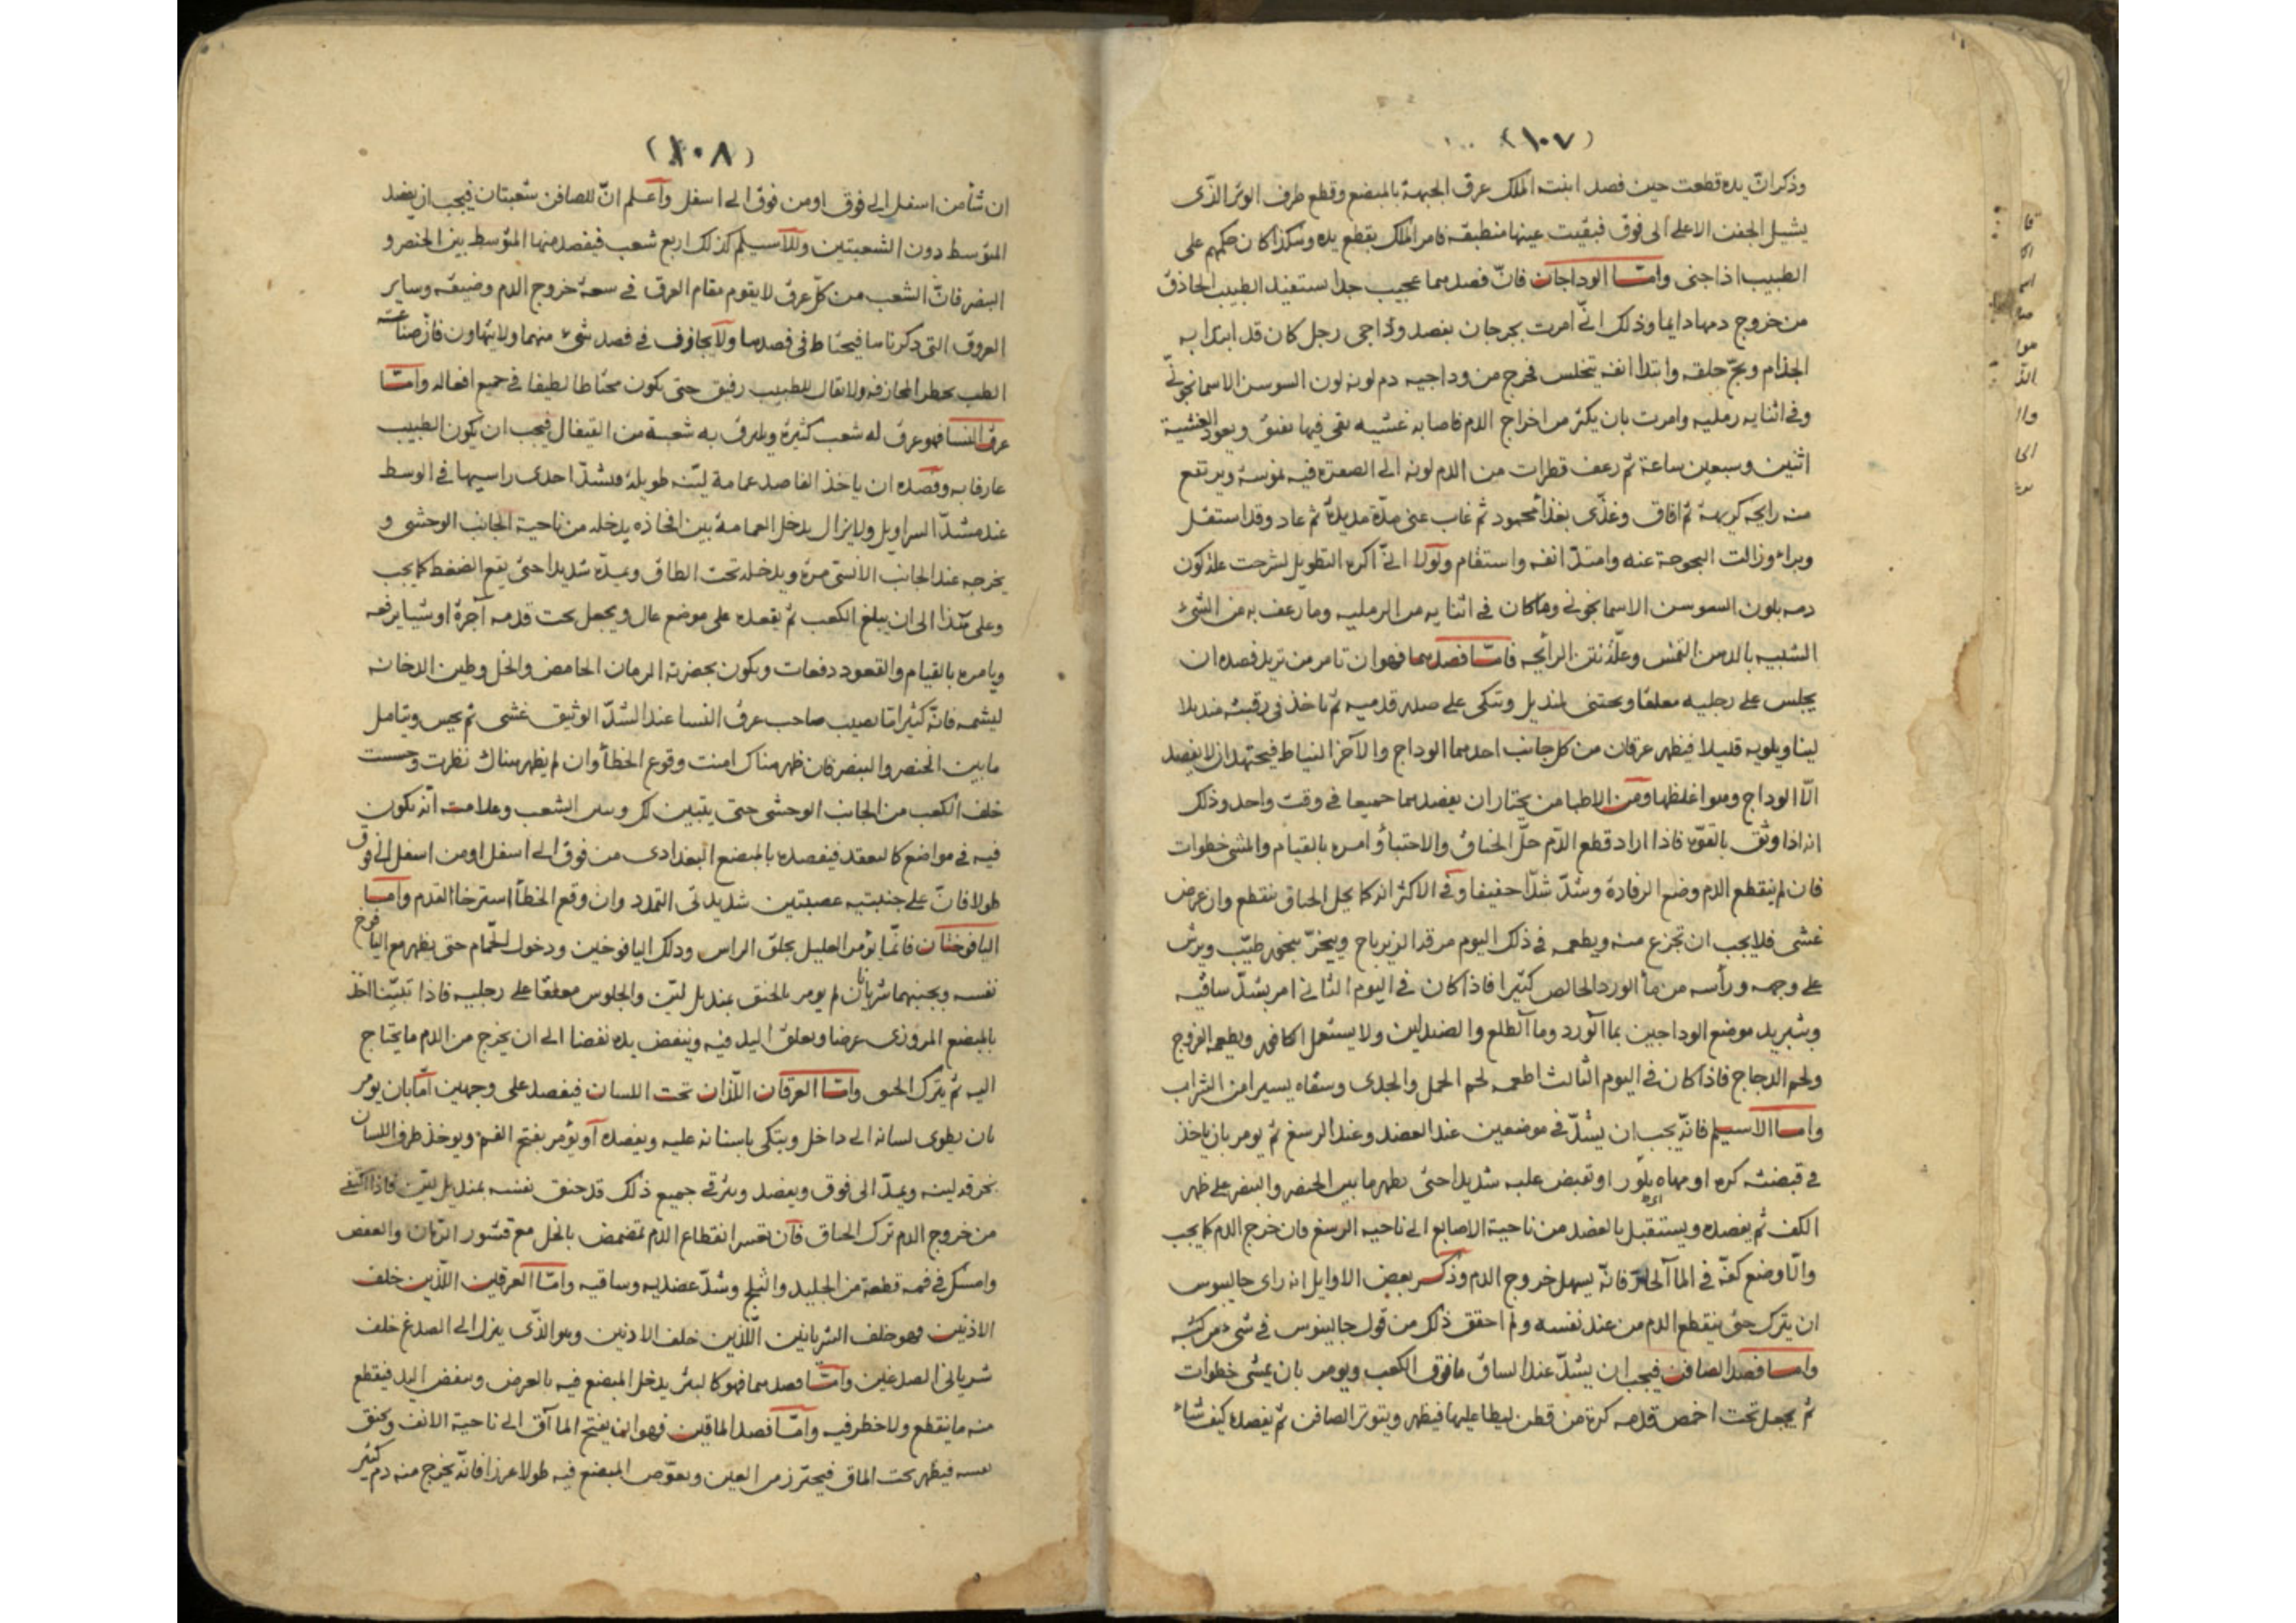 (١٠٧)
وذكر انّ يده قطعت حين فصد ابنت الملك عرق الجبهة بالمبضع وقطع طرف الوتر الذّى
يشيل الجفن الاعلى الى فوق فبقيت عينها منطبقه فامر الملك بقطع يده وهكذا كان حكمهم على
الطبيب اذا جنى وامّا الوداجان فانّ فصدهما عجيب جدا يستفيد الطبيب الحاذق
من خروج دمها دايما وذلك انّى امرت بجرجان بفصد وداجى رجل كان قد ابتدا به
الجذام وبحّ حلقه وابتدا انفه يتخلس فخرج من وداجيه دم لونه لون السوسن الاسمانجونّى
وفى اثنايه رمليه وامرت بان يكثر من اخراج الدم فاصابه غشيه بقى فيها يفيق ويعود الغشية
اثنين وسبعين ساعة ثم رعف قطرات من الدم لونه الى الصفرة فيه نموسة ويرتفع
منه رايحه كريهة ثم افاق وغذّى بغذاء محمود ثم غاب عنى مدّة مديدة ثم عاد وقد استقل
وبراء وزالت البحوحة عنه وامتدّ انفه واستقام ولولا انّى اكره التطويل لشرحت علة كون
دمه بلون السوسن الاسمانجونى وما كان فى اثنايه من الرمليه وما رعف به من الشئ
الشبيه بالدم من النمس وعلّة نتن الرائحه فامّا فصدهما فهو ان تامر من تريد فصده ان
يجلس على رجليه معلقا ويحتبى بمنديل وتتكى على صدر قدميه ثم تاخذ فى رقبته منديلا
لينا ويلويه قليلا فيظهر عرقان من كل جانب احدهما الوداج والاخر النياط فيجتهد ان لا يفصد
الّا الوداج وهو اغلظها ومن الاطبا من يختار ان يفصدهما جميعا فى وقت واحد وذلك
انه اذا وثق بالقوّه فاذا اراد قطع الدّم حلّ الخناق والاحتباء وامره بالقيام والمشى خطوات
فان لم ينقطع الدم وضع الرفادة وشدّ شدّا خفيفا وفى الاكثر انه كما يحل الخناق ينقطع وان عرض
غشى فلا يجب ان تجزع منه ويطعمه فى ذلك اليوم مرقد الزيرباج ويبخرّ ببخور طيّب ويرش
على وجهه ورأسه من ماء الورد الخالص كثيرا فاذا كان فى اليوم الثانى امر بشدّ ساقيه
وبتبريد موضع الوداجين بماء الورد وماء الطلع والصندلين ولا يستعمل الكافور ويطعمه الفروج
ولحم الدجاج فاذا كان فى اليوم الثالث اطعمه لحم الحمل والجدى وسقاه يسيرا من الشراب
وامـا الاسيلم فانّه يجب ان يشدّ فى موضعين عند العضد وعند الرسغ ثم يومر بان ياخذ
فى قبضته كره او مهاه بلّور او تقبض عليه شديدا حتى يظهر ما بين الخنصر والبنصر على ظهر
الكف ثم يفصده ويستقبل بالفصد من ناحية الاصابع الى ناحيه الرسغ فان خرج الدم كما يجب
والّا وضع كفّه فى الماء الحار فانّه يسهل خروج الدم وذكر بعض الاوايل انه راى جالينوس
ان يترك حتى ينقطع الدم من عند نفسه ولم احقق ذلك من قول جالينوس فى شئ من كتبه
وامـا فصد الصافن فيجب ان يشدّ عند الساق ما فوق الكعب ويومر بان يمشى خطوات
ثم يجعل تحت اخمص قدمه كرة من قطن ليطا عليها فيظهر ويتوتر الصافن ثم يفصده كيف شاء
(١٠٨)
ان شأ من اسفل الى فوق او من فوق الى اسفل واعـلم انّ للصافن شعبتان فيجب ان يفصد
المتوسط دون الشعبتين وللاسيلم كذلك اربع شعب فيفصد منها المتوسط بين الخنصر و
البنصر فانّ الشعب من كلّ عرق لا يقوم مقام العرق فى سعة خروج الدم وضيقه وساير
العروق التى ذكرناها فيحتاط فى فصدها ولا يجازف فى فصد شئ منهما ولا يتهاون فانّ صناعته
الطب يخطر المجازفه ولا يقال للطبيب رفيق حتى يكون محتاطا لطيفا فى جميع افعاله وامـّا
عرق النسا فهو عرق له شعب كثيرة ويلتزق به شعبة من القيفال فيجب ان يكون الطبيب
عارفا به وفصده ان ياخذ الفاصد عمامة ليّنه طويلة فيشدّ احدى راسيها فى الوسط
عند مشدّ السراويل ولا يزال يدخل العمامة بين افخاذه يدخله من ناحية الجانب الوحشى و
يخرجه عند الجانب الانسى مرة ويدخله تحت الطاق ويمدّه شديدا حتى يقع الضغط كما يجب
وعلى هذا الى ان يبلغ الكعب ثم يقعده على موضع عال ويجعل تحت قدمه آجرة او شيا يرفعه
ويامره بالقيام والقعود دفعات ويكون بحضرته الرمان الحامض والخل وطين الدخانه
ليشمه فانّه كثيرا ما يصيب صاحب عرق النسا عند الشدّ الوثيق غشى ثم يحس ويتامل
ما بين الخنصر والبنصر فان ظهر هناك امنت وقوع الخطأ وان لم يظهر هناك نظرت وجسست
خلف الكعب من الجانب الوحشى حتى يتبين لك وبين الشعب وعلامته انّه يكون
فيه فى مواضع كالعقد فيفصده بالمبضع البغدادى من فوق الى اسفل او من اسفل الى فوق
طولا فانّ على جنبتيه عصبتين شديدتى التمدد وان وقع الخطأ استرخا القدم وامـّا
اليافوخان فانّما يؤمر العليل بحلق الراس ودلك اليافوخين ودخول الحمّام حتى يظهر مع اليافوخ
نفسه وبجنبهما شريانان ثم يومر بالخنق بمنديل ليّن والجلوس معلقا على رجليه فاذا تبيّنا اخذ
بالمبضع المروزى عرضا ويعلق اليد فيه وينفض يده نفضا الى ان يخرج من الدم ما يحتاج
اليه ثم يترك الخنق وامـّا العرقان اللّذان تحت اللسان فيفصد على وجهين امّا بان يومر
بان يطوى لسانه الى داخل ويتكى باسنانه عليه ويفصده او يؤمر بفتح الفم ويوخذ طرف اللسان
بخرقه لينه ويمدّ الى فوق ويفصد ويترقى جميع ذلك قد خنق نفسه بمنديل ليّن فاذا اكتفى
من خروج الدم ترك الخناق فان تعسر انقطاع الدم تمضمض بالخل مع قشور الرّمان والعفص
وامسك فى فمه قطعة من الجليد والثلج وشدّ عضديه وساقيه وامـّا العرقين اللّذين خلف
الاذنين فهو خلف الشريانين اللّذين خلف الاذنين وهو الذّى ينزل الى الصدغ خلف
شريانى الصدغين وامـّا فصدهما فهو كالبتر يدخل المبضع فيه بالعرض وينفض اليد فيقطع
منه ما ينقطع ولا خطر فيه وامـّا فصد الماقين فهو ان يفتح الماآق الى ناحية الانف وتخنق
نفسه فيظهر تحت الماق فيحترز من العين ويغوّص المبضع فيه طولا غرزا فانّه يخرج منه دم كثير